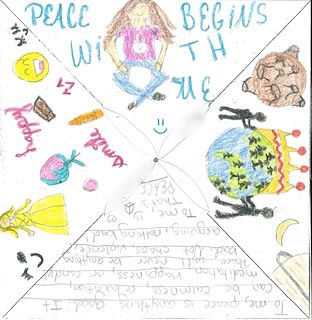 PEACE BEGINS
WITH
ME
Happy
smile
To me, peace is anything good. It
can be calmness, relaxation,
meditation, happiness, or candy.
Peace will never be anything
bad. Not chaos, violence,
arguing, nothing bad!
To me,
That's
PEACE